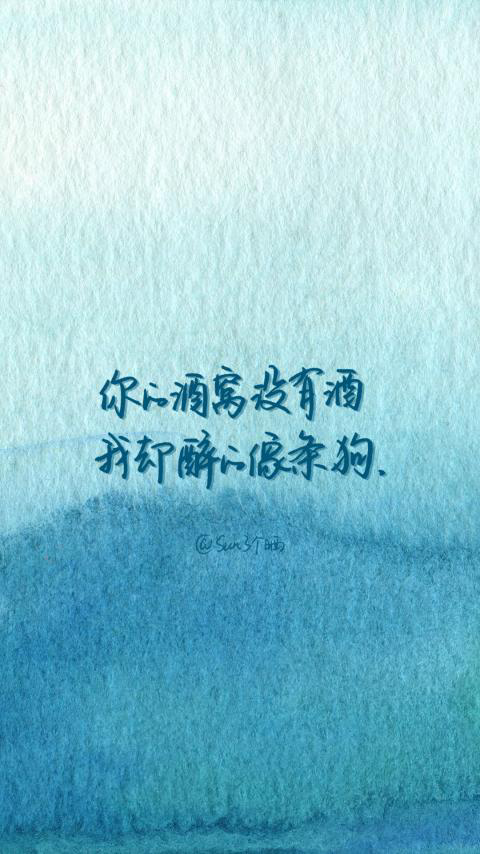 你的酒窝没有酒
我却醉的像条狗.
@Sun3个晒